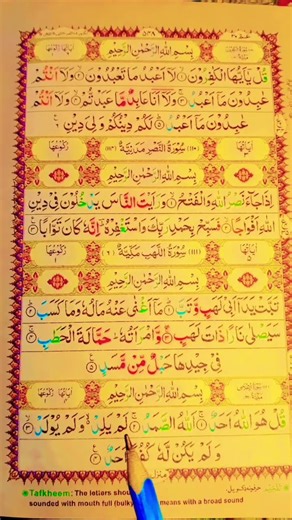 بِسْمِ اللهِ الرَّحْمٰنِ الرَّحِيْمِ
قُلْ يٰۤاَيُّهَا الْكٰفِرُوْنَ ۙ لَاۤ اَعْبُدُ مَا تَعْبُدُوْنَ ۙ وَلَاۤ اَنْتُمْ
عٰبِدُوْنَ مَاۤ اَعْبُدُ ۚ وَلَاۤ اَنَا عَابِدٌ مَّا عَبَدْتُّمْ ۙ وَلَاۤ اَنْتُمْ
عٰبِدُوْنَ مَاۤ اَعْبُدُ ؕ لَكُمْ دِيْنُكُمْ وَلِيَ دِيْنِ
سُوْرَةُ النَّصْرِ مَدَنِيَّةٌ
بِسْمِ اللهِ الرَّحْمٰنِ الرَّحِيْمِ
اِذَا جَآءَ نَصْرُ اللهِ وَالْفَتْحُ ۙ وَرَاَيْتَ النَّاسَ يَدْخُلُوْنَ فِيْ دِيْنِ
اللهِ اَفْوَاجًا ۙ فَسَبِّحْ بِحَمْدِ رَبِّكَ وَاسْتَغْفِرْهُ ؔ اِنَّهٗ كَانَ تَوَّابًا
(۱۱۱) سُوْرَةُ اللَّهَبِ مَكِّيَّةٌ (۶)
بِسْمِ اللهِ الرَّحْمٰنِ الرَّحِيْمِ
تَبَّتْ يَدَاۤ اَبِيْ لَهَبٍ وَّتَبَّ ؕ مَاۤ اَغْنٰى عَنْهُ مَالُهٗ وَمَا كَسَبَ
سَيَصْلٰى نَارًا ذَاتَ لَهَبٍ ۙ وَّامْرَاَتُهٗ ؕ حَمَّالَةَ الْحَطَبِ
فِيْ جِيْدِهَا حَبْلٌ مِّنْ مَّسَدٍ
بِسْمِ اللهِ الرَّحْمٰنِ الرَّحِيْمِ
قُلْ هُوَ اللهُ اَحَدٌ ۚ اَللهُ الصَّمَدُ ۚ لَمْ يَلِدْ ۙ وَلَمْ يُوْلَدْ
وَلَمْ يَكُنْ لَّهٗ كُفُوًا اَحَدٌ
Tafkheem: The letters shou
sounded with mouth full (bulky means with a broad sound